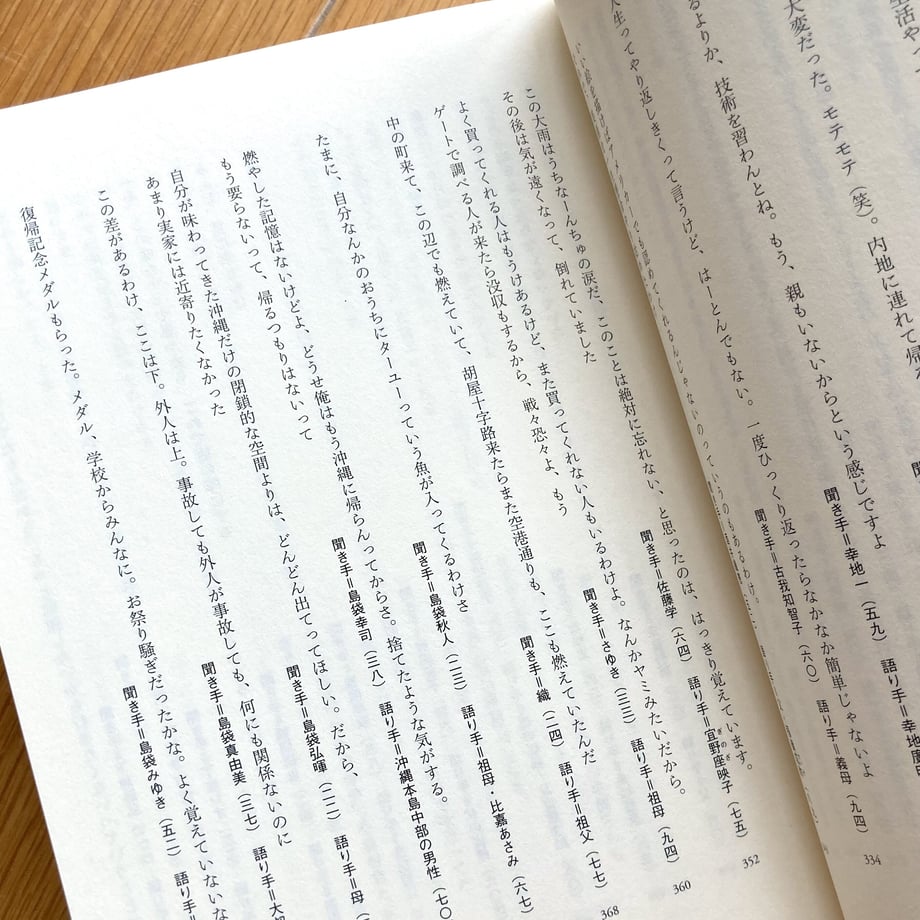 生活や
大変だった。モテモテ（笑）。内地に連れて帰
聞き手＝幸地一（五九）　語り手＝幸地
るよりか、技術を習わんとね。もう、親もいないからという感じですよ
聞き手＝古我知智子（六〇）　語り手＝義母（九四）
334
人生ってやり返しきくって言うけど、はーとんでもない。一度ひっくり返ったらなかなか簡単じゃないよ
この大雨はうちなーんちゅの涙だ、このことは絶対に忘れない、と思ったのは、はっきり覚えています。
その後は気が遠くなって、倒れていました
聞き手＝佐藤学（六四）　語り手＝宜野座映子（七五）
352
よく買ってくれる人はもうけあるけど、また買ってくれない人もいるわけよ。なんかヤミみたいだから。
ゲートで調べる人が来たら没収もするから、戦々恐々よ、もう
聞き手＝さゆき（三三）　語り手＝祖母（九四）
360
中の町来て、この辺でも燃えていて、胡屋十字路来たらまた空港通りも、ここも燃えていたんだ
聞き手＝織（二四）　語り手＝祖父（七七）
368
たまに、自分なんかのおうちにターユーっていう魚が入ってくるわけさ
聞き手＝島袋秋人（二三）　語り手＝祖母・比嘉あさみ（六七）
燃やした記憶はないけどよ、どうせ俺はもう沖縄に帰らんってからさ。捨てたような気がする。
もう要らないって、帰るつもりはないって
聞き手＝島袋幸司（三八）　語り手＝沖縄本島中部の男性（七〇
自分が味わってきた沖縄だけの閉鎖的な空間よりは、どんどん出てってほしい。だから、
あまり実家には近寄りたくなかった
聞き手＝島袋弘暉（二二）　語り手＝母（
この差があるわけ、ここは下。外人は上。事故しても外人が事故しても、何にも関係ないのに
聞き手＝島袋真由美（三七）　語り手＝大
復帰記念メダルもらった。メダル、学校からみんなに。お祭り騒ぎだったかな。よく覚えていないな
聞き手＝島袋みゆき（五二）　語り手